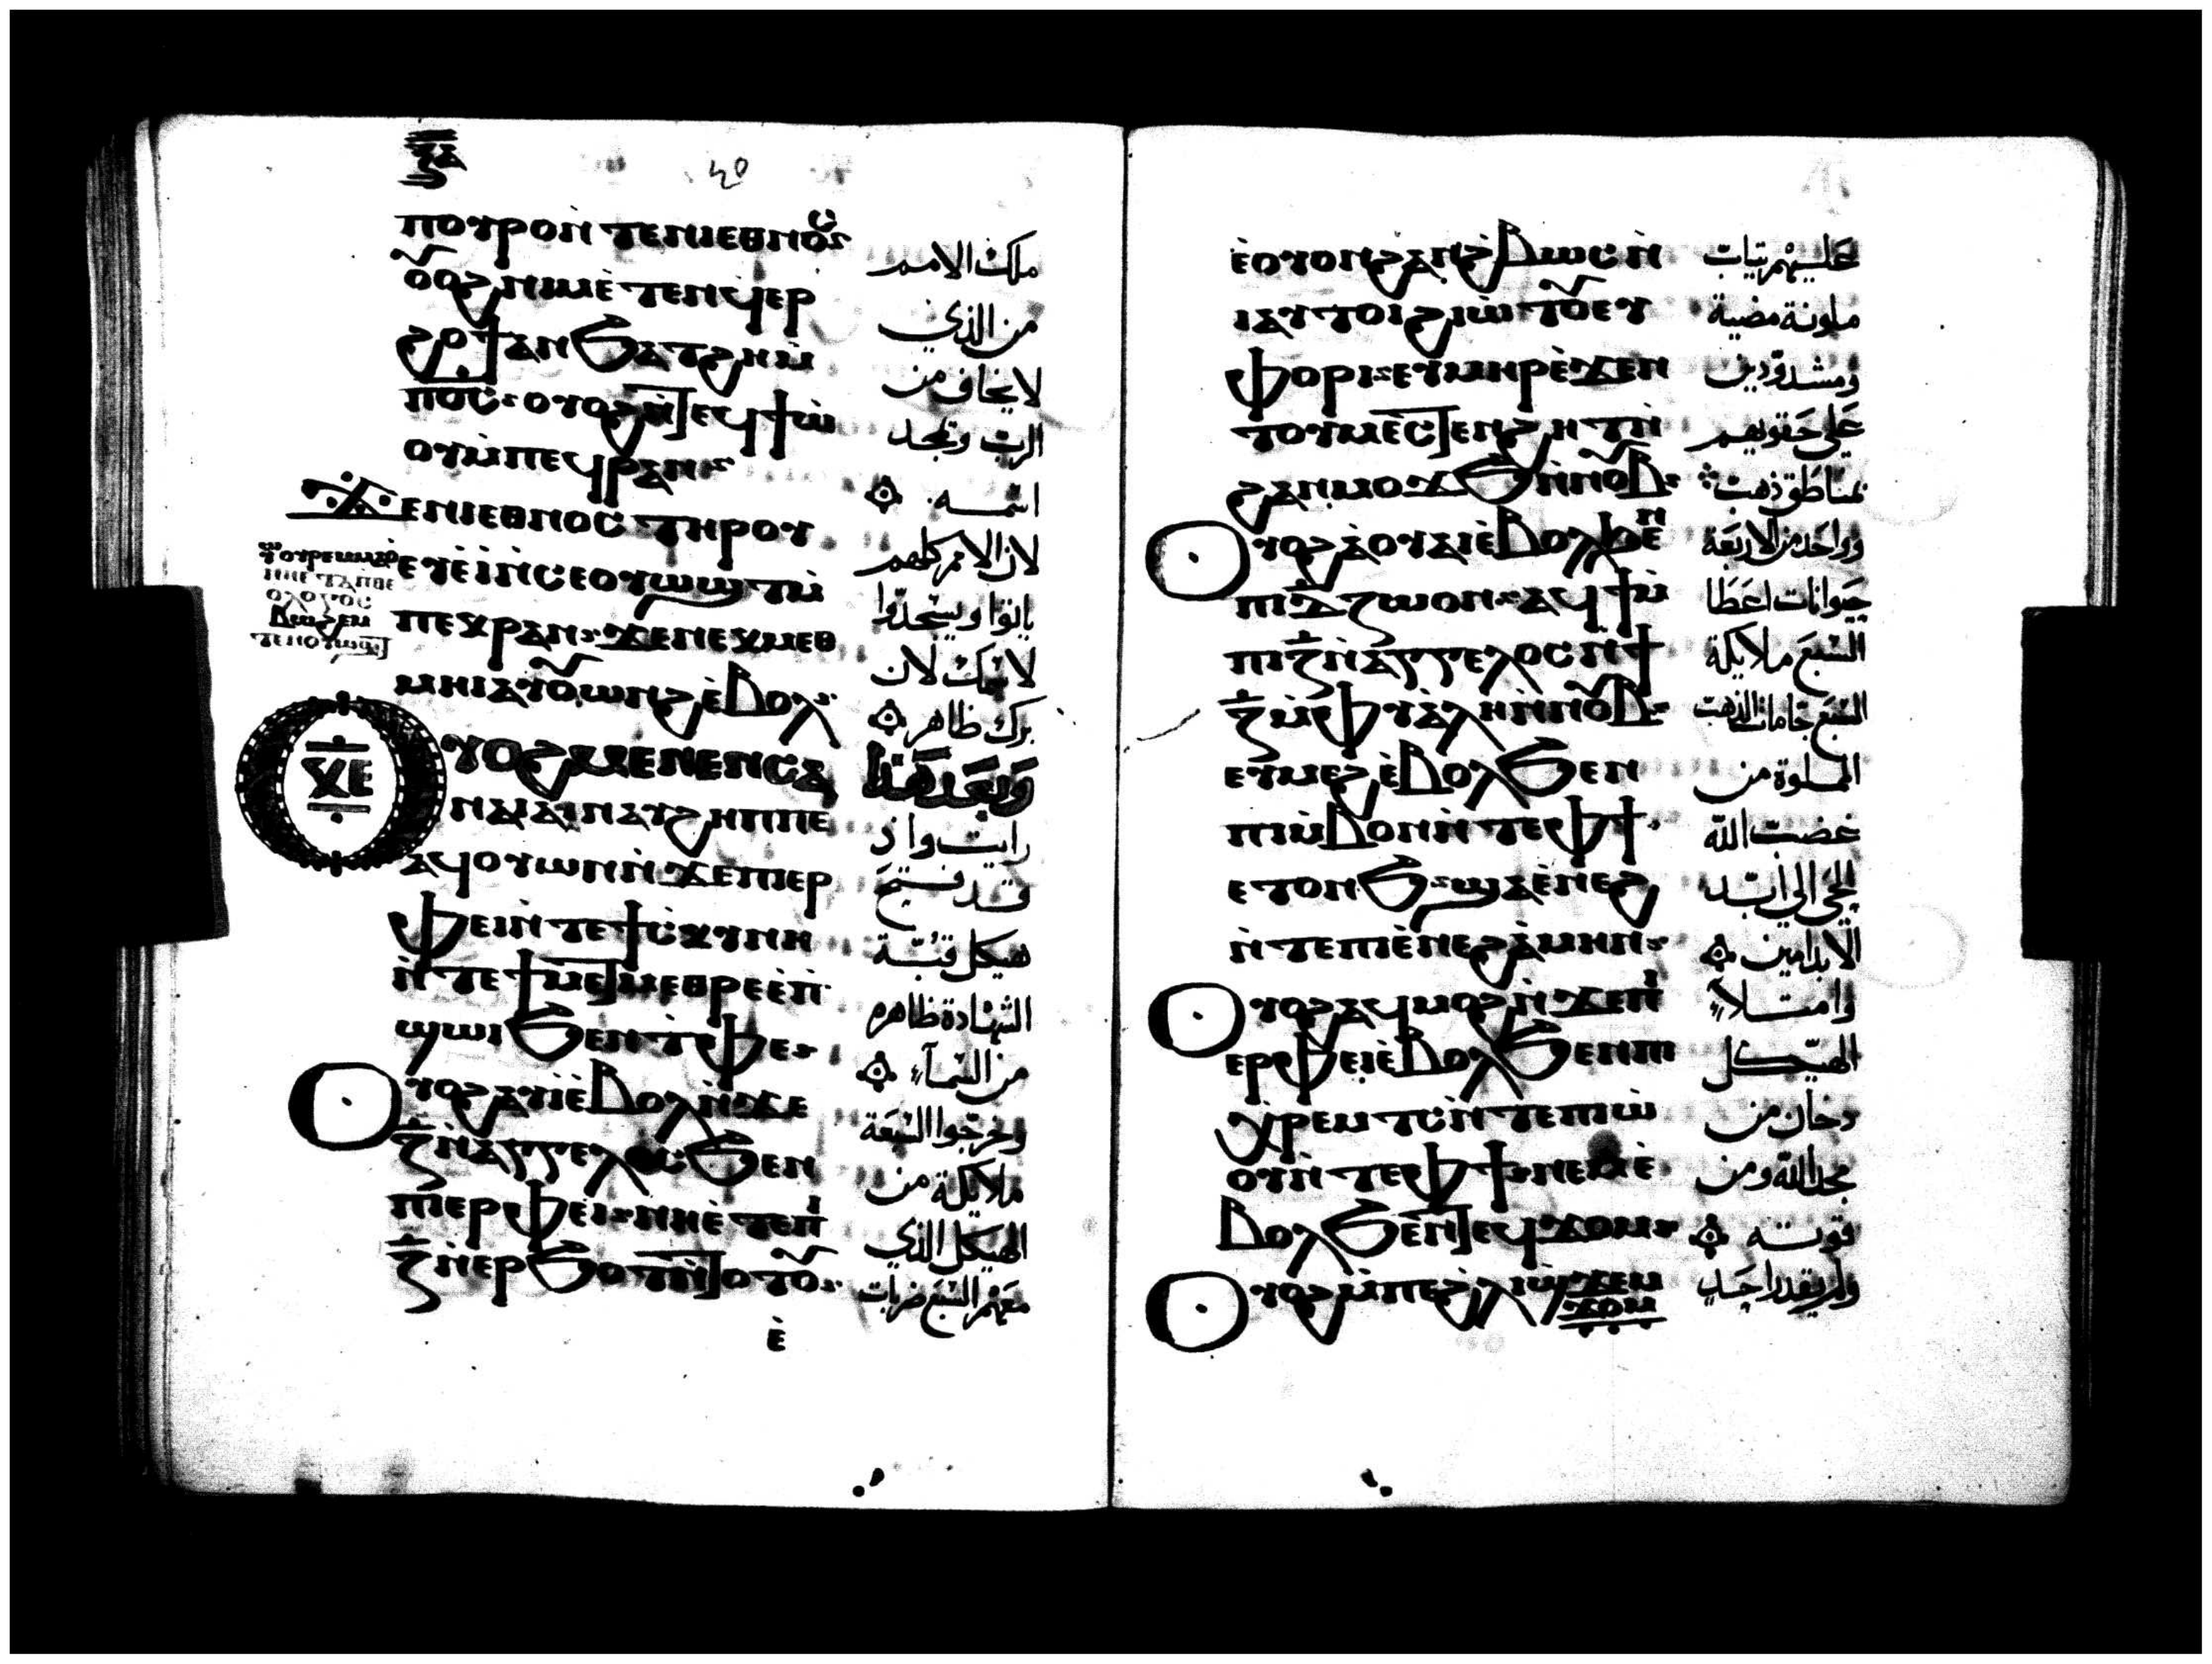 ⲡⲟⲩⲣⲟⲛ̀ⲧⲉⲛⲓⲉⲑⲛⲟⲥ
ⲟⲩⲟϩⲛⲓⲙⲉ̀ⲧⲉⲛϥⲉⲣ
ϩⲟϯⲁⲛϧⲁⲧϩⲏⲙ̀
ⲡⲟ̅ⲥ̅ ⲟⲩⲟϩⲛ̀ⲧⲉϥϯⲱ̀
ⲟⲩⲙ̀ⲡⲉϥⲣⲁⲛ
ϫⲉⲛⲓⲉⲑⲛⲟⲥ ⲧⲏⲣⲟⲩ
ⲉⲩⲉ̀ⲓ̀ⲛ̀ⲥⲉⲟⲩⲱϣⲧⲙ̀
ⲡⲉⲕⲣⲁⲛ ϫⲉⲛⲉⲕⲙⲉⲑ
ⲙⲏⲓⲁⲩⲟⲩⲱⲛϩⲉ̀ⲃⲟⲗ
ⲟⲩⲟϩⲙⲉⲛⲉⲛⲥⲁ
ⲛⲁⲓⲁⲓⲛⲁⲩϩⲏⲡⲡⲉ
ⲁϥⲟⲩⲱⲛⲛ̀ϫⲉⲡⲓⲉⲣ
ⲫⲉⲓⲛ̀ⲧⲉϯⲥ̀ⲕⲩⲛⲏ
ⲛ̀ⲧⲉϯⲙⲉⲧⲙⲉⲑⲣⲉⲉ̀ⲡ̀
ϣⲱⲓϧⲉⲛⲧ̀ⲫⲉ
ⲟⲩⲟϩⲁⲩⲓ̀ⲉ̀ⲃⲟⲗⲛ̀ϫⲉ
ⲍ̅ⲛ̀ⲁⲅⲅⲉⲗⲟⲥϧⲉⲛ
ⲡⲓⲉⲣⲫⲉⲓ ⲛⲏⲉ̀ⲧⲉⲡⲓ
ⲍ̅ⲛ̀ⲉⲣϧⲟⲧⲛ̀ⲧⲟⲧⲟⲩ
ⲉ̀
ملك الامم
من الذي
لا يخاف من
الرب وتمجد
اسمه
لان الامم كلهم
ياتوا ويسجدوا
لاسمك لان
برك ظاهر
وبعد هذا
رايت واذ
قد فتح
هيكل قبة
الشهادة ظاهره
من السماء
وخرجوا السبعة
ملايكة من
الهيكل الذي
معهم السبع ضربات
ⲉ̀ⲟⲩⲟⲛϩⲁⲛϩⲃⲱⲥⲛ̀
ⲓⲁⲩⲧⲟⲓϩⲓⲱ̀ⲧⲟⲩⲉⲩ
ⲫⲟⲣⲓ ⲉⲩⲙⲏⲣⲉ̀ϫⲉⲛ
ⲧⲟⲩⲙⲉ̀ⲥⲧⲉⲛϩⲏⲧⲛ̀
ϩⲁⲛⲙⲟϫϧⲛ̀ⲛⲟⲩⲃ
ⲟⲩⲟϩⲁ̀ⲟⲩⲁⲓⲉ̀ⲃⲟⲗϧⲉⲛ
ⲡⲓⲇ̅ⲍⲱⲟⲛ ⲁϥϯⲙ̀
ⲡⲓⲍ̅ⲛ̀ⲁⲅⲅⲉⲗⲟⲥⲛ̀ϯ
ⲍ̅ⲙ̀ⲫⲩⲁ̀ⲗⲏⲛ̀ⲛⲟⲩⲃ
ⲉⲩⲙⲉϩⲉ̀ⲃⲟⲗϧⲉⲛ
ⲡⲓⲙ̀ⲃⲟⲛⲛ̀ⲧⲉⲫϯ
ⲉⲧⲟⲛϧ ϣⲁⲉ̀ⲛⲉϩ
ⲛ̀ⲧⲉⲡⲓⲉ̀ⲛⲉϩⲁ̀ⲙⲏⲛ
ⲟⲩⲟϩⲁϥⲙⲟϩⲛ̀ϫⲉⲡⲓ
ⲉⲣⲫⲉⲓⲉ̀ⲃⲟⲗϧⲉⲛⲡⲓ
ⲭⲣⲉⲙⲧⲥⲛ̀ⲧⲉⲡⲓⲱ̀
ⲟⲩⲛ̀ⲧⲉⲫϯ ⲛⲉⲙⲉ̀
ⲃⲟⲗϧⲉⲛⲧⲉϥϫⲟⲙ
ⲟⲩⲟϩⲙ̀ⲡⲉϩ̀ⲗⲓϣ̀ϫⲉⲙ
ϫⲟⲙ
عليهم تياب
ملونة مضية
ومشدودين
على حقويهم
بمناطق ذهب
وواحد من الاربعة
حيوانات اعطا
السبع ملايكة
السبع جامات الذهب
المملوة من
غضب الله
الحي الي ابد
الابد امين
وامتلاء
الهيكل
دخان من
مجد الله ومن
قوته
ولم يقدر احد